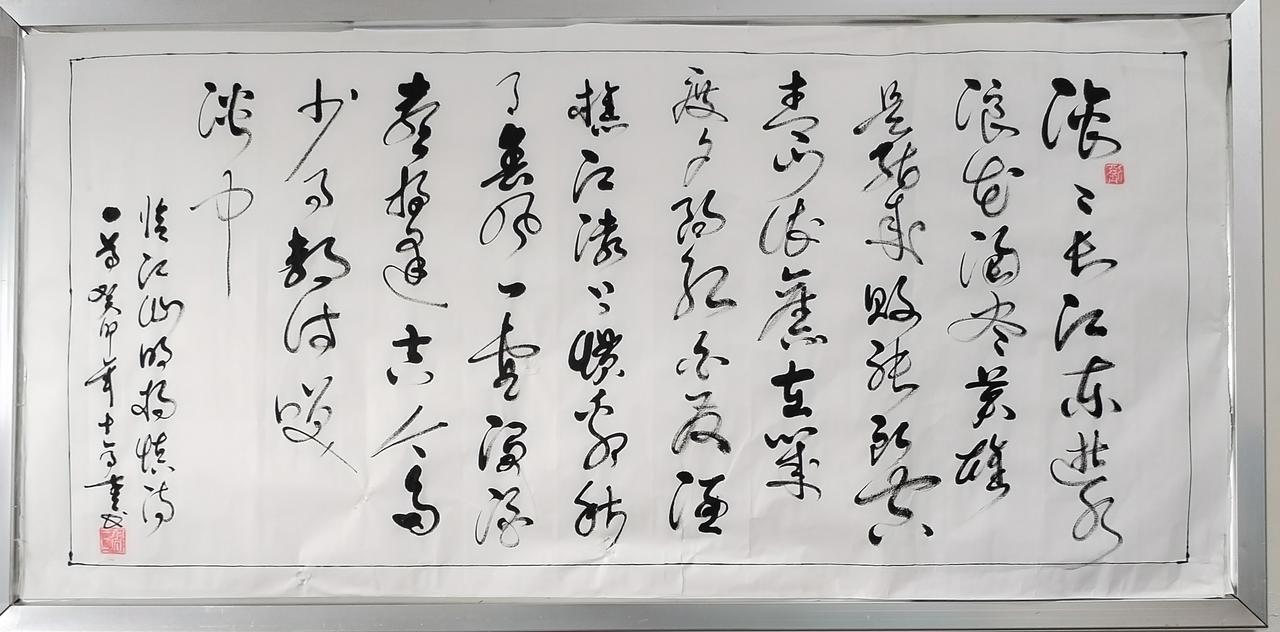 滚〻长江东逝水
浪花淘尽英雄
是非成败转头空
青山依旧在几
度夕阳红白发渔
樵江渚上惯看秋
月春风一壶浊酒
喜相逢古今多
少事都付笑
谈中
临江仙明杨慎词
癸卯年十月書